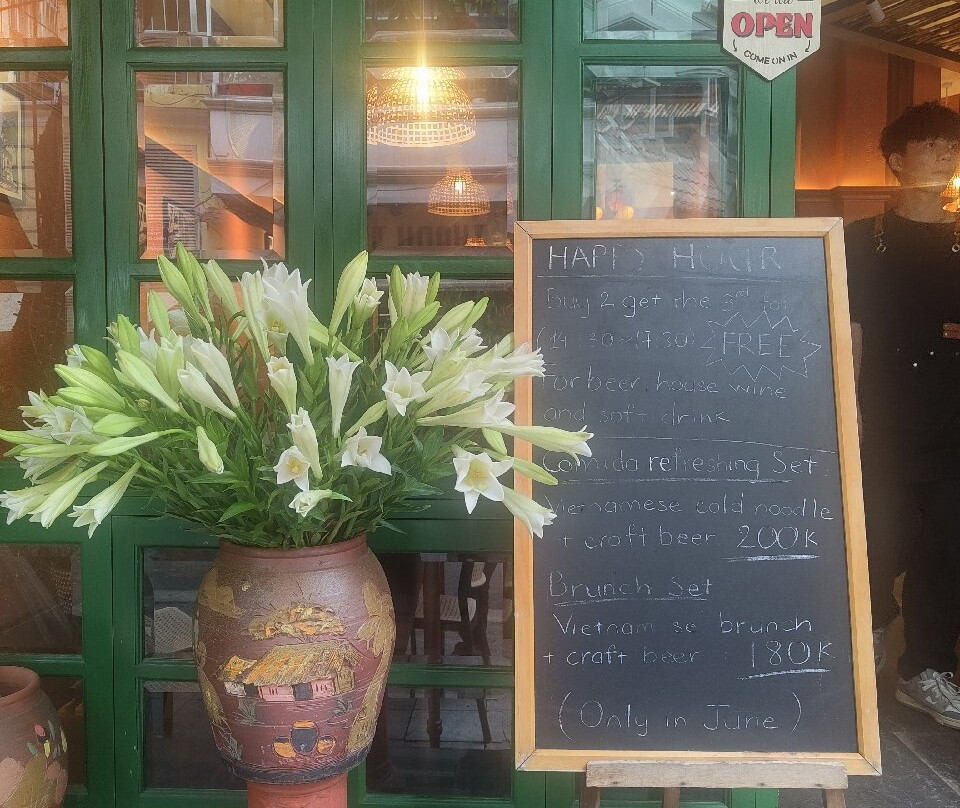 we are
OPEN
COME ON IN
HAPPY HOUR
Buy 2 get the 3rd for
(14:30-17:30) FREE
For beer, house wine
and soft drink
Comida refreshing Set
Vietnamese cold noodle
+ craft beer 200K
Brunch Set
Vietnamese brunch
+ craft beer 180K
(Only in June)